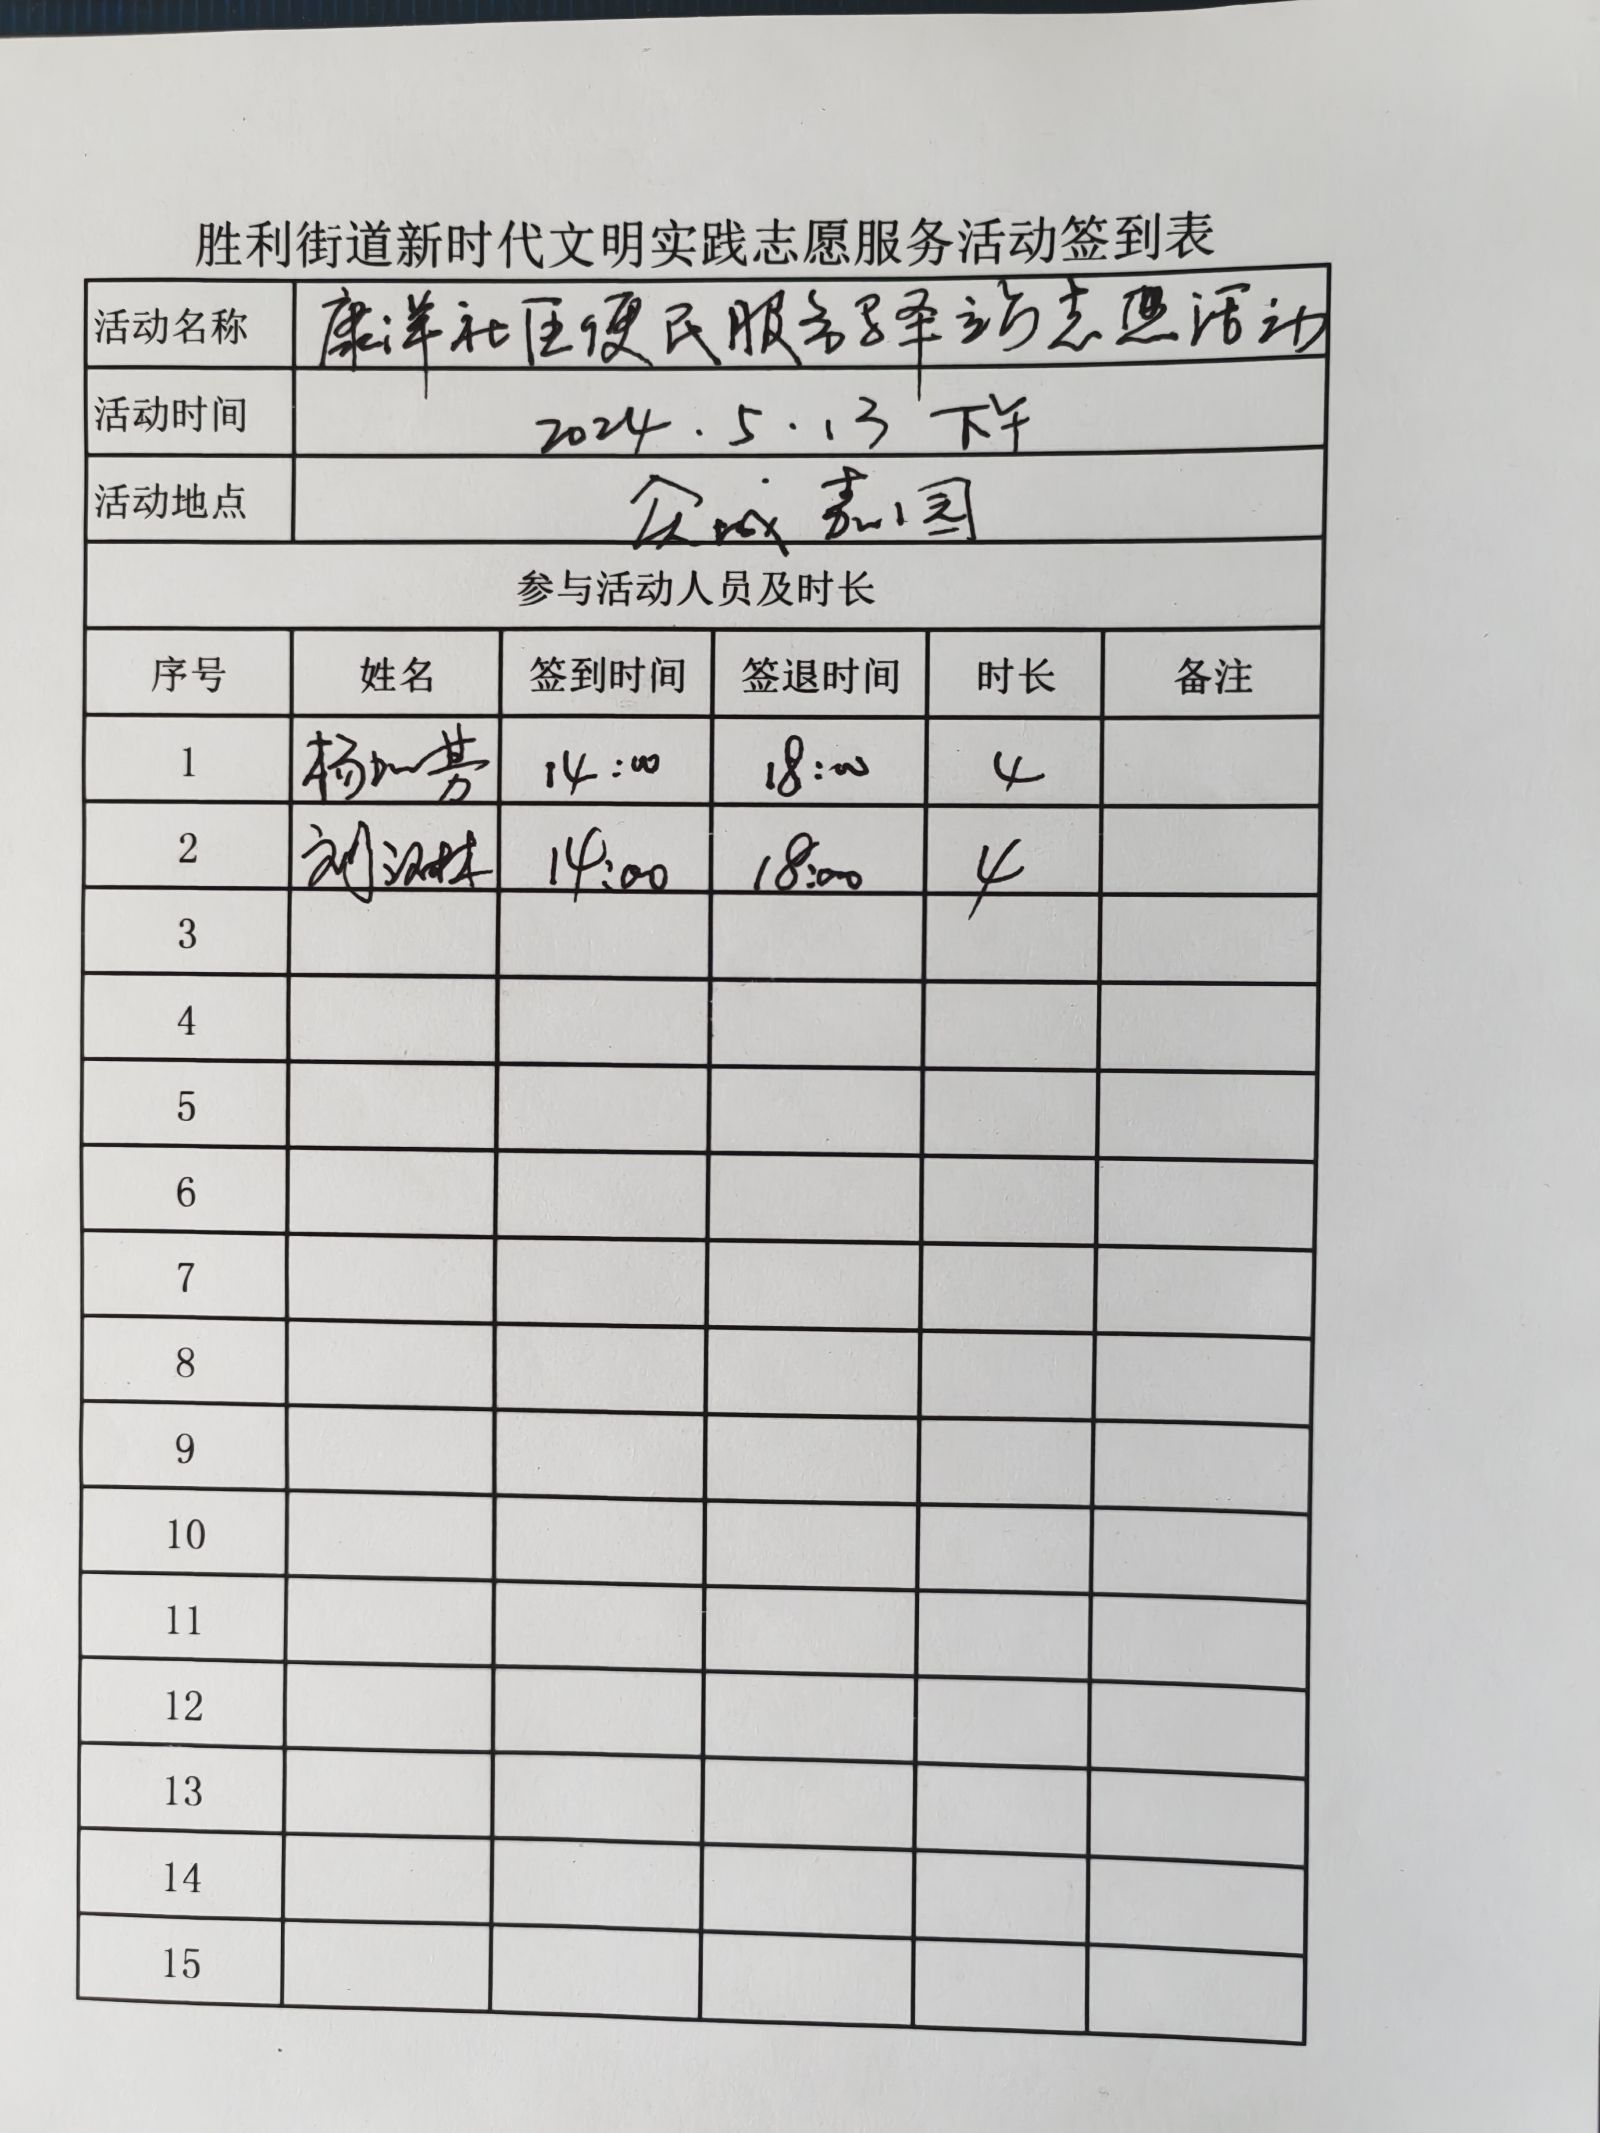 胜利街道新时代文明实践志愿服务活动签到表
活动名称 康洋社区便民服务驿站志愿活动
活动时间 2024.5.13 下午
活动地点 众城嘉园
参与活动人员及时长
序号 姓名 签到时间 签退时间 时长 备注
1 杨 14:00 18:00 4
2 刘汉林 14:00 18:00 4
3
4
5
6
7
8
9
10
11
12
13
14
15